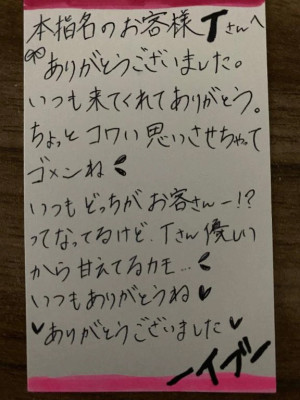 本指名のお客様Tさんへ
ありがとうございました。
いつも来てくれてありがとう。
ちょっとコワい思いさせちゃって
ゴメンね
いつもどっちがお客さんー!?
ってなってるけど、Tさん優しい
から甘えてるカモ…
いつもありがとうね♥
♥ありがとうございました♥
ーイブー